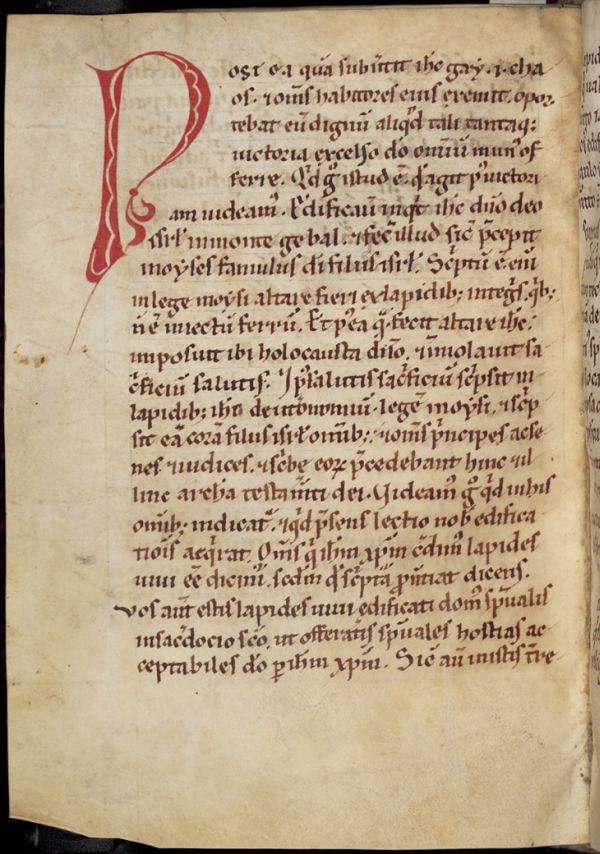 Postea quā subu̅tit ih̅c gay. i. cha
os. ⁊ om̅s habitores eius exemit. opor
tebat eū dignū aliq̅d tali tantaq;
uictoria excelso do̅ om̅iū mun' of
ferre. Qd̅ g̊ istud ē. q̊d agit p̊ uictori
am uideam'. Edificauit inq̅t ih̅c altare dn̅o deo
isrl̅ in monte gebal. ⁊ fec̅ illud sic̅ p̅cepit
moyses famulus di̅ filiis isrl̅. Sc̅ptū ē eni̅
in lege moysi altare fieri ex lapidib; integ̅s. q̅b;
n̅ ē iniectū ferrū. Et p̊ ea q̅ fecit altare ih̅c
imposuit ibi holocausta dn̅o. ⁊ im̅molauit sa
c̅ficiū salutis. I p̊ salutis sac̅ficiū sc̅psit in
lapidib; ih̅c deut̅onomiū. legē moysi. ⁊ sc̅p
sit eā corā filiis isrl̅ om̅ib;. ⁊ om̅s p̅ncipes ac se
nes ⁊ iudices. ⁊ sc̅be eoꝝ p̅cedebant hinc ⁊ il
linc archā testam̅ti dei. Uideam' g̊ q̅d in his
om̅ib; indicat̅. ⁊ q̅d p̅sens lectio nob̅ edifica
tiois̅ acq̅rat. Om̅s q̅ ih̅m xp̅m c̅dim' lapides
uiui ee̅ dicim̅. sc̅dm q̊d sc̅ptā p̅nuntiat dicens.
Vos aut̅ estis lapides uiui edificati dom' sp̅ualis
in sac̅docio sc̅o. ut offeratis sp̅uales hostias ac
ceptabiles do̅ ꝑ ih̅m xp̅m. Sic̅ au̅ in istis t̅re